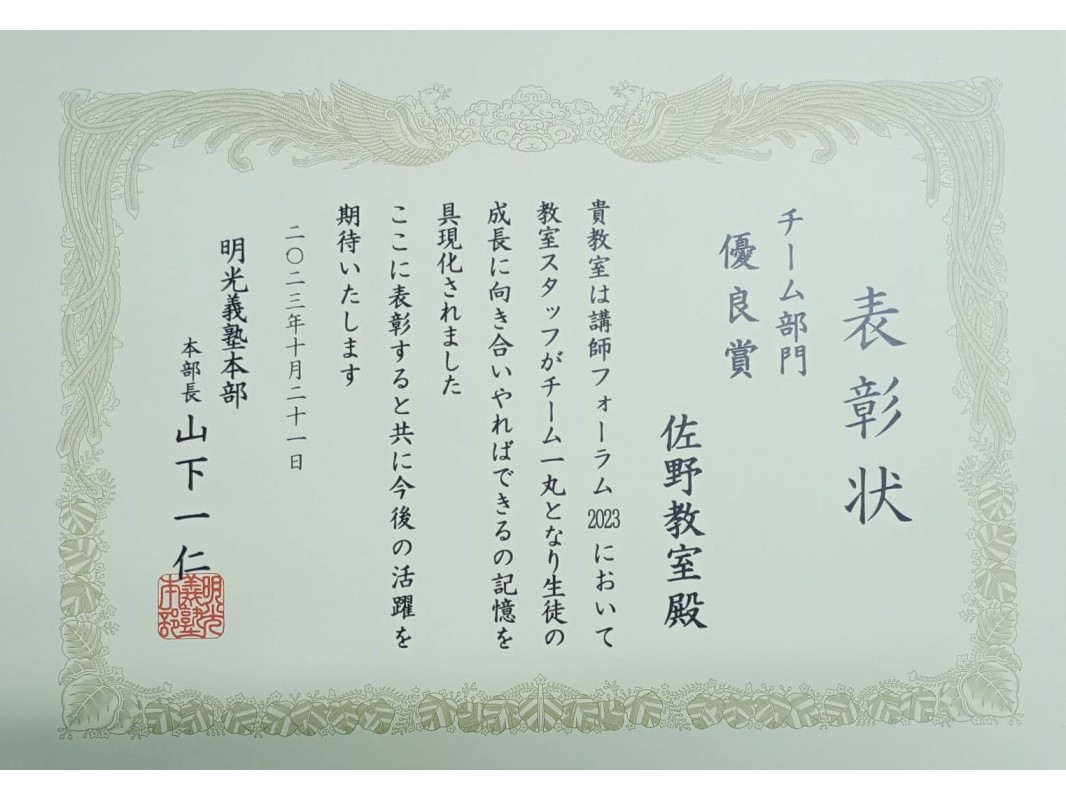 表彰状
チーム部門
優良賞
佐野教室殿
貴教室は講師フォーラム2023において
教室スタッフがチーム一丸となり生徒の
成長に向き合いやればできるの記憶を
具現化されました
ここに表彰すると共に今後の活躍を
期待いたします
二〇二三年十月二十一日
明光義塾本部
本部長 山下一仁
明光
義塾
本部